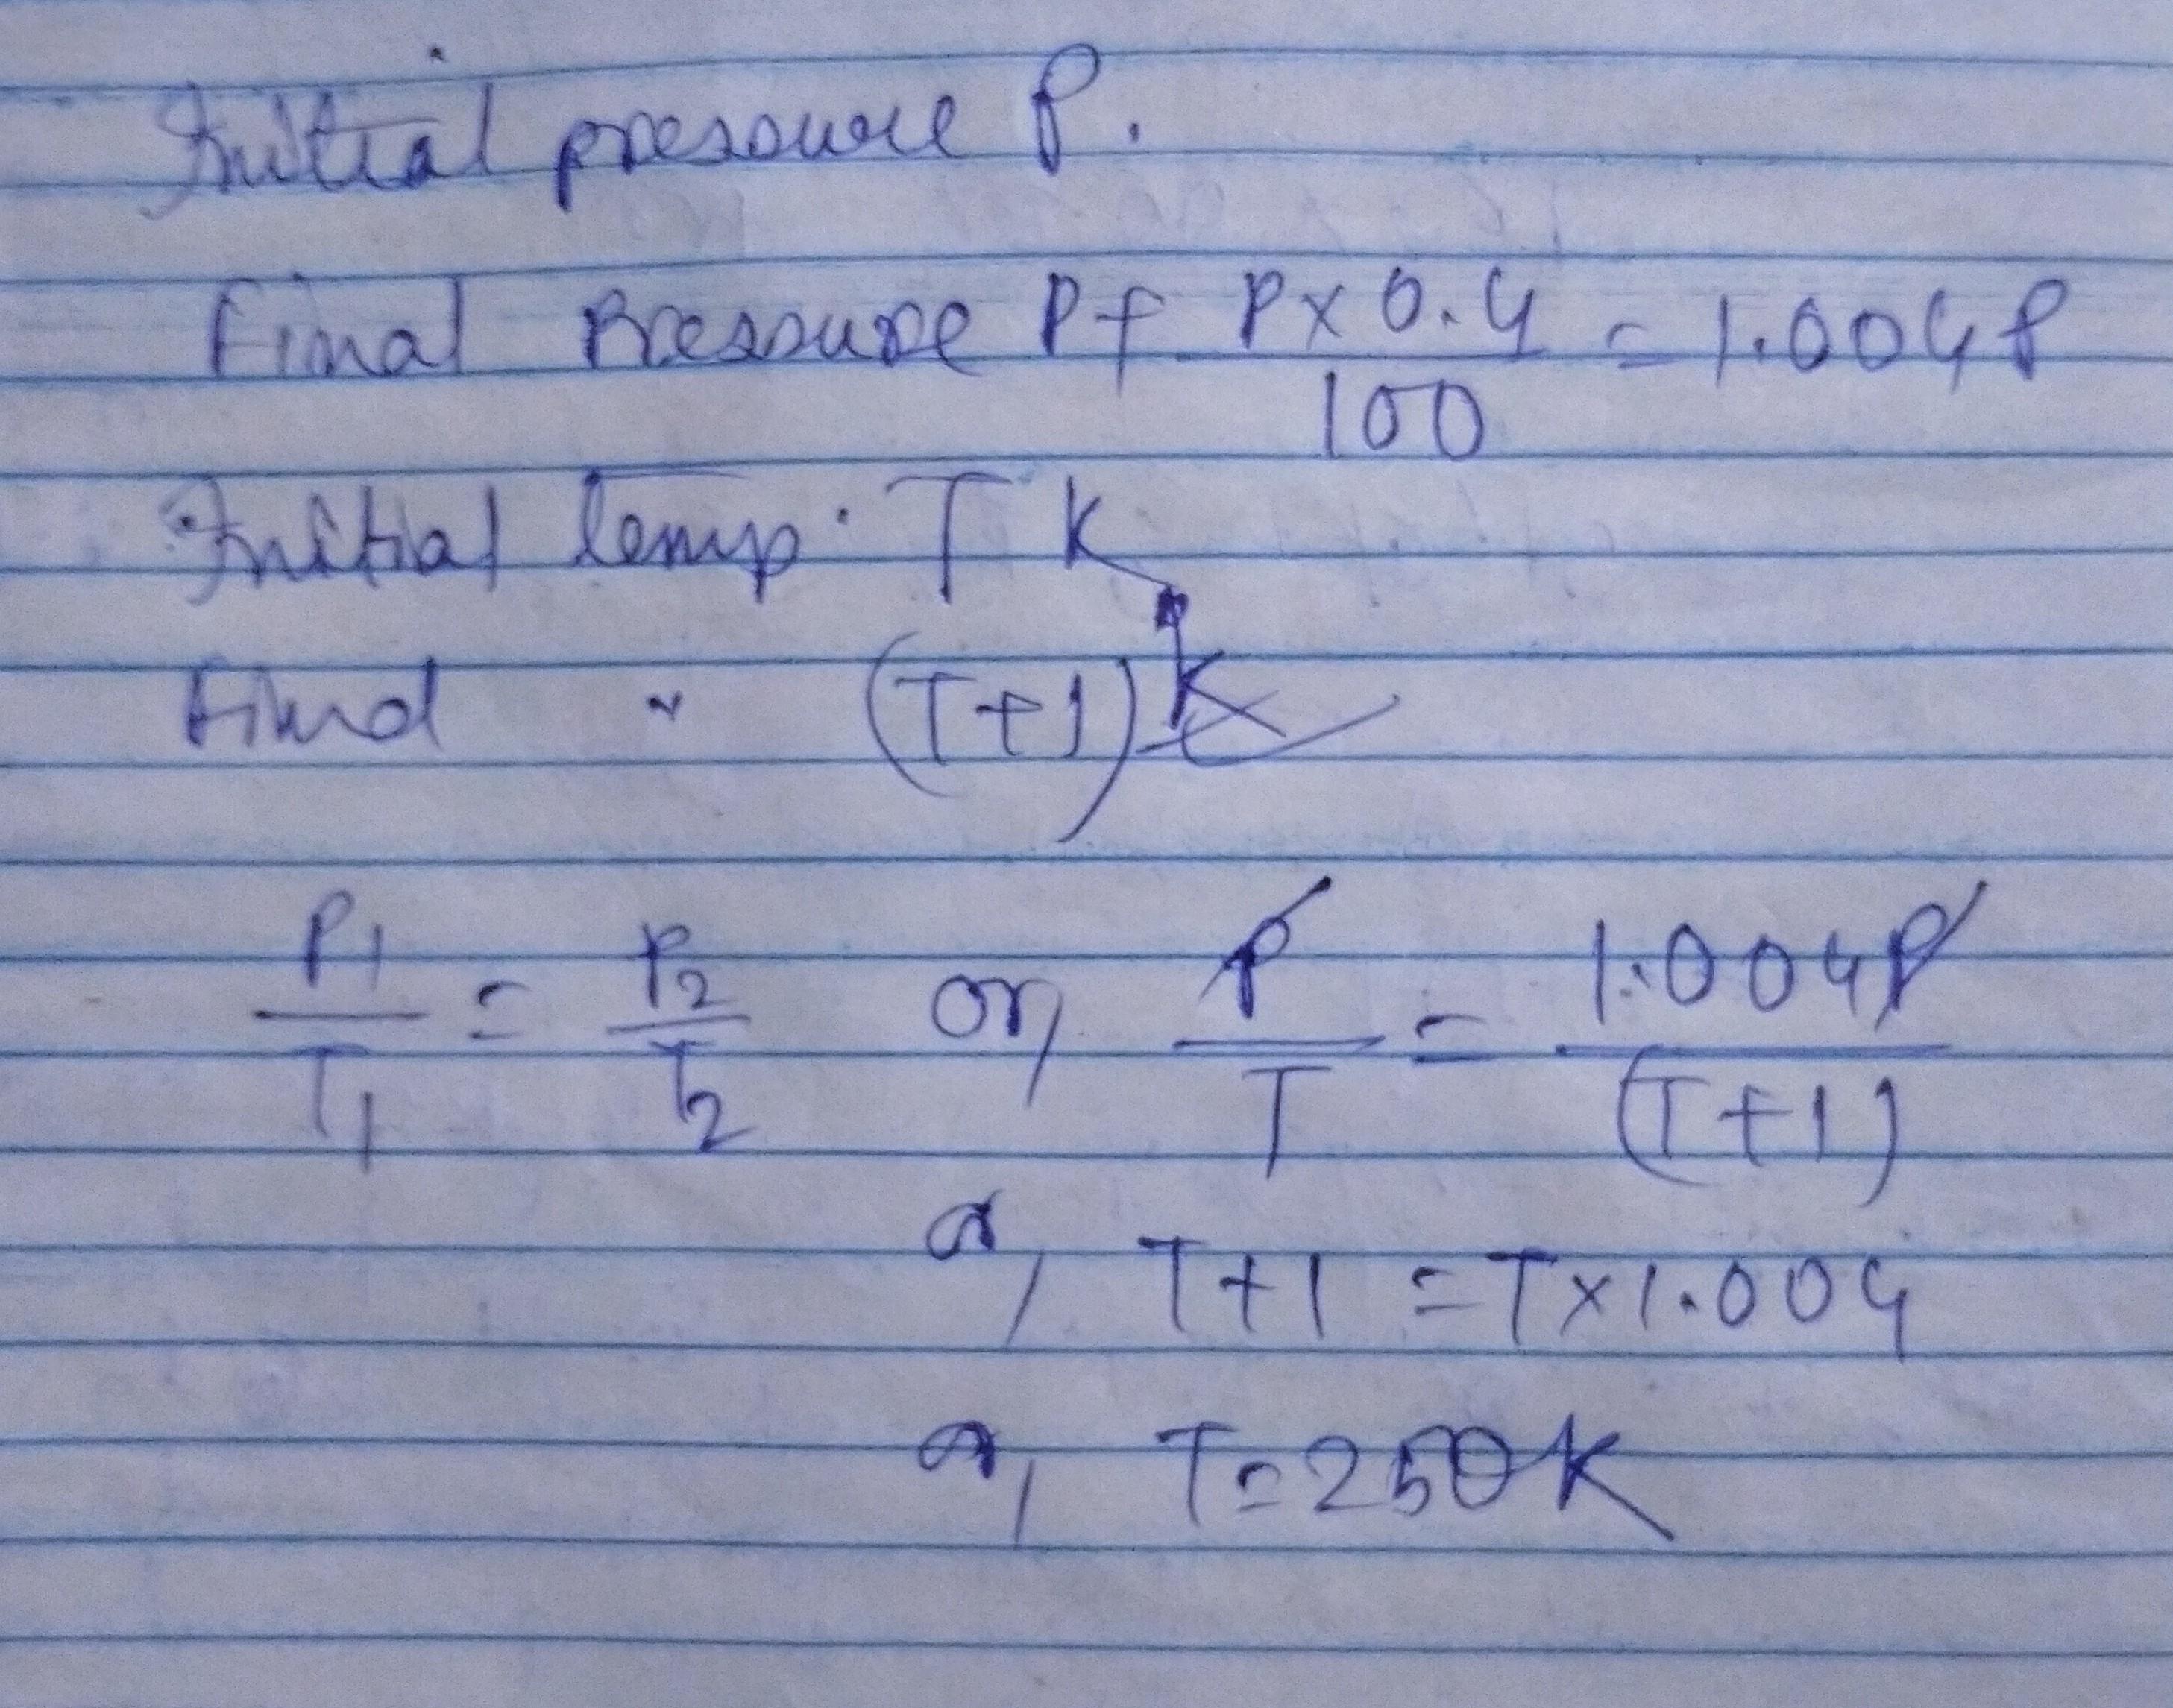 Initial pressure P.
Final Pressure P+ P×0.4/100 = 1.004P
Initial temp. T K
Final " (T+1) K
P1/T1 = P2/T2 or, P/T = 1.004P/(T+1)
or, T+1 = T×1.004
or, T=250K